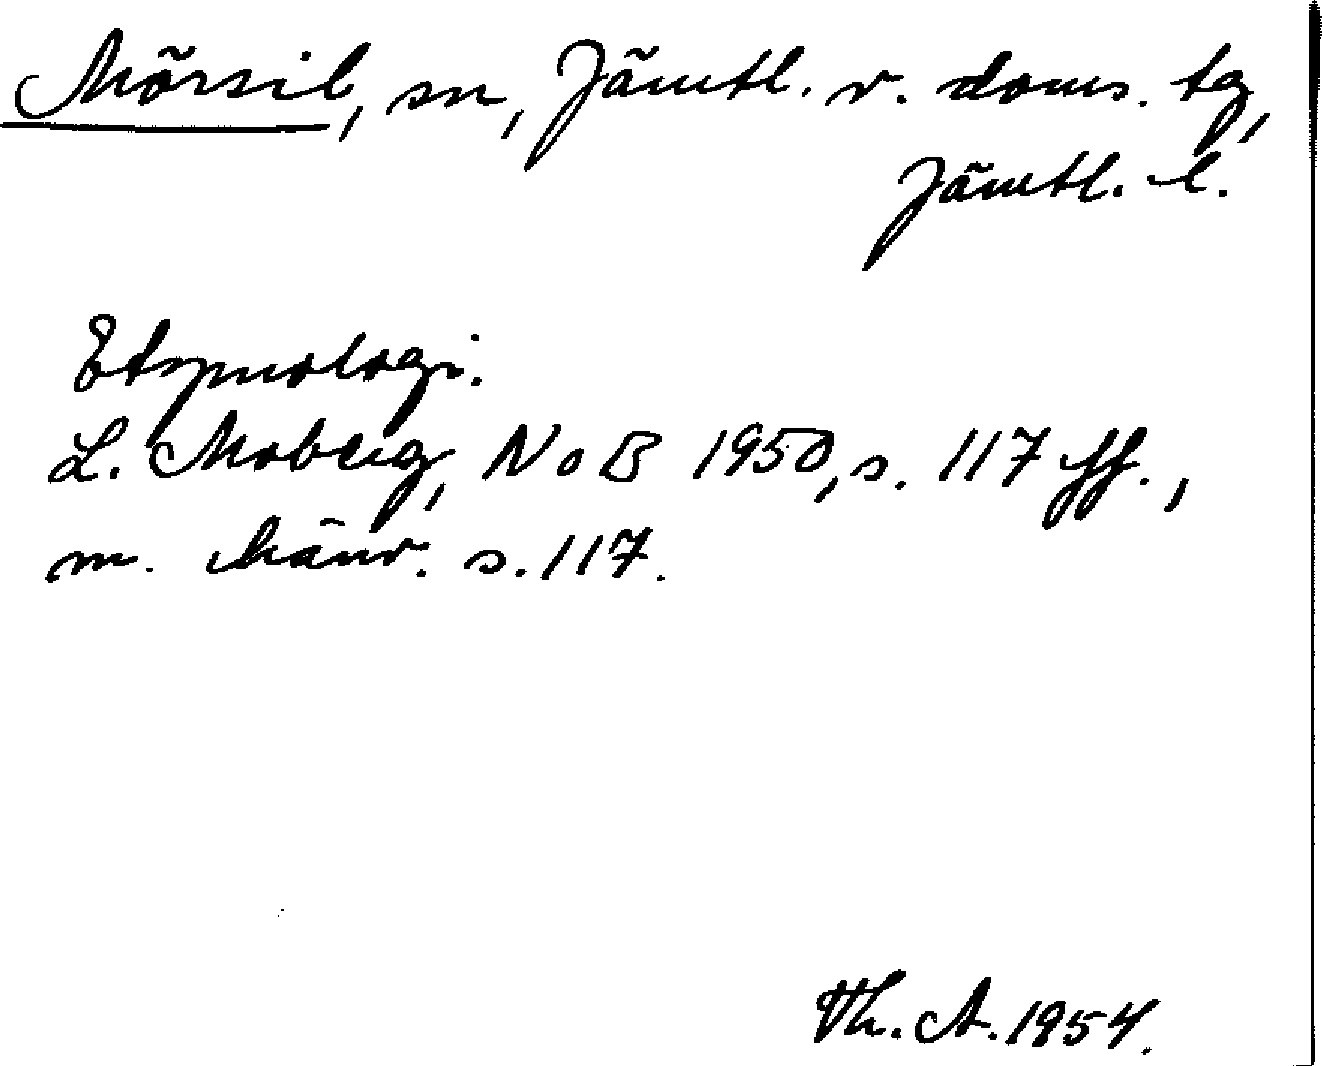 Mörsil, sn, Jämtl. v. doms. tg,
Jämtl. l.
Etymologi.
L. Moberg, NoB 1950, s. 117 ff.,
m. hänv. s. 117.
Th. A. 1954.